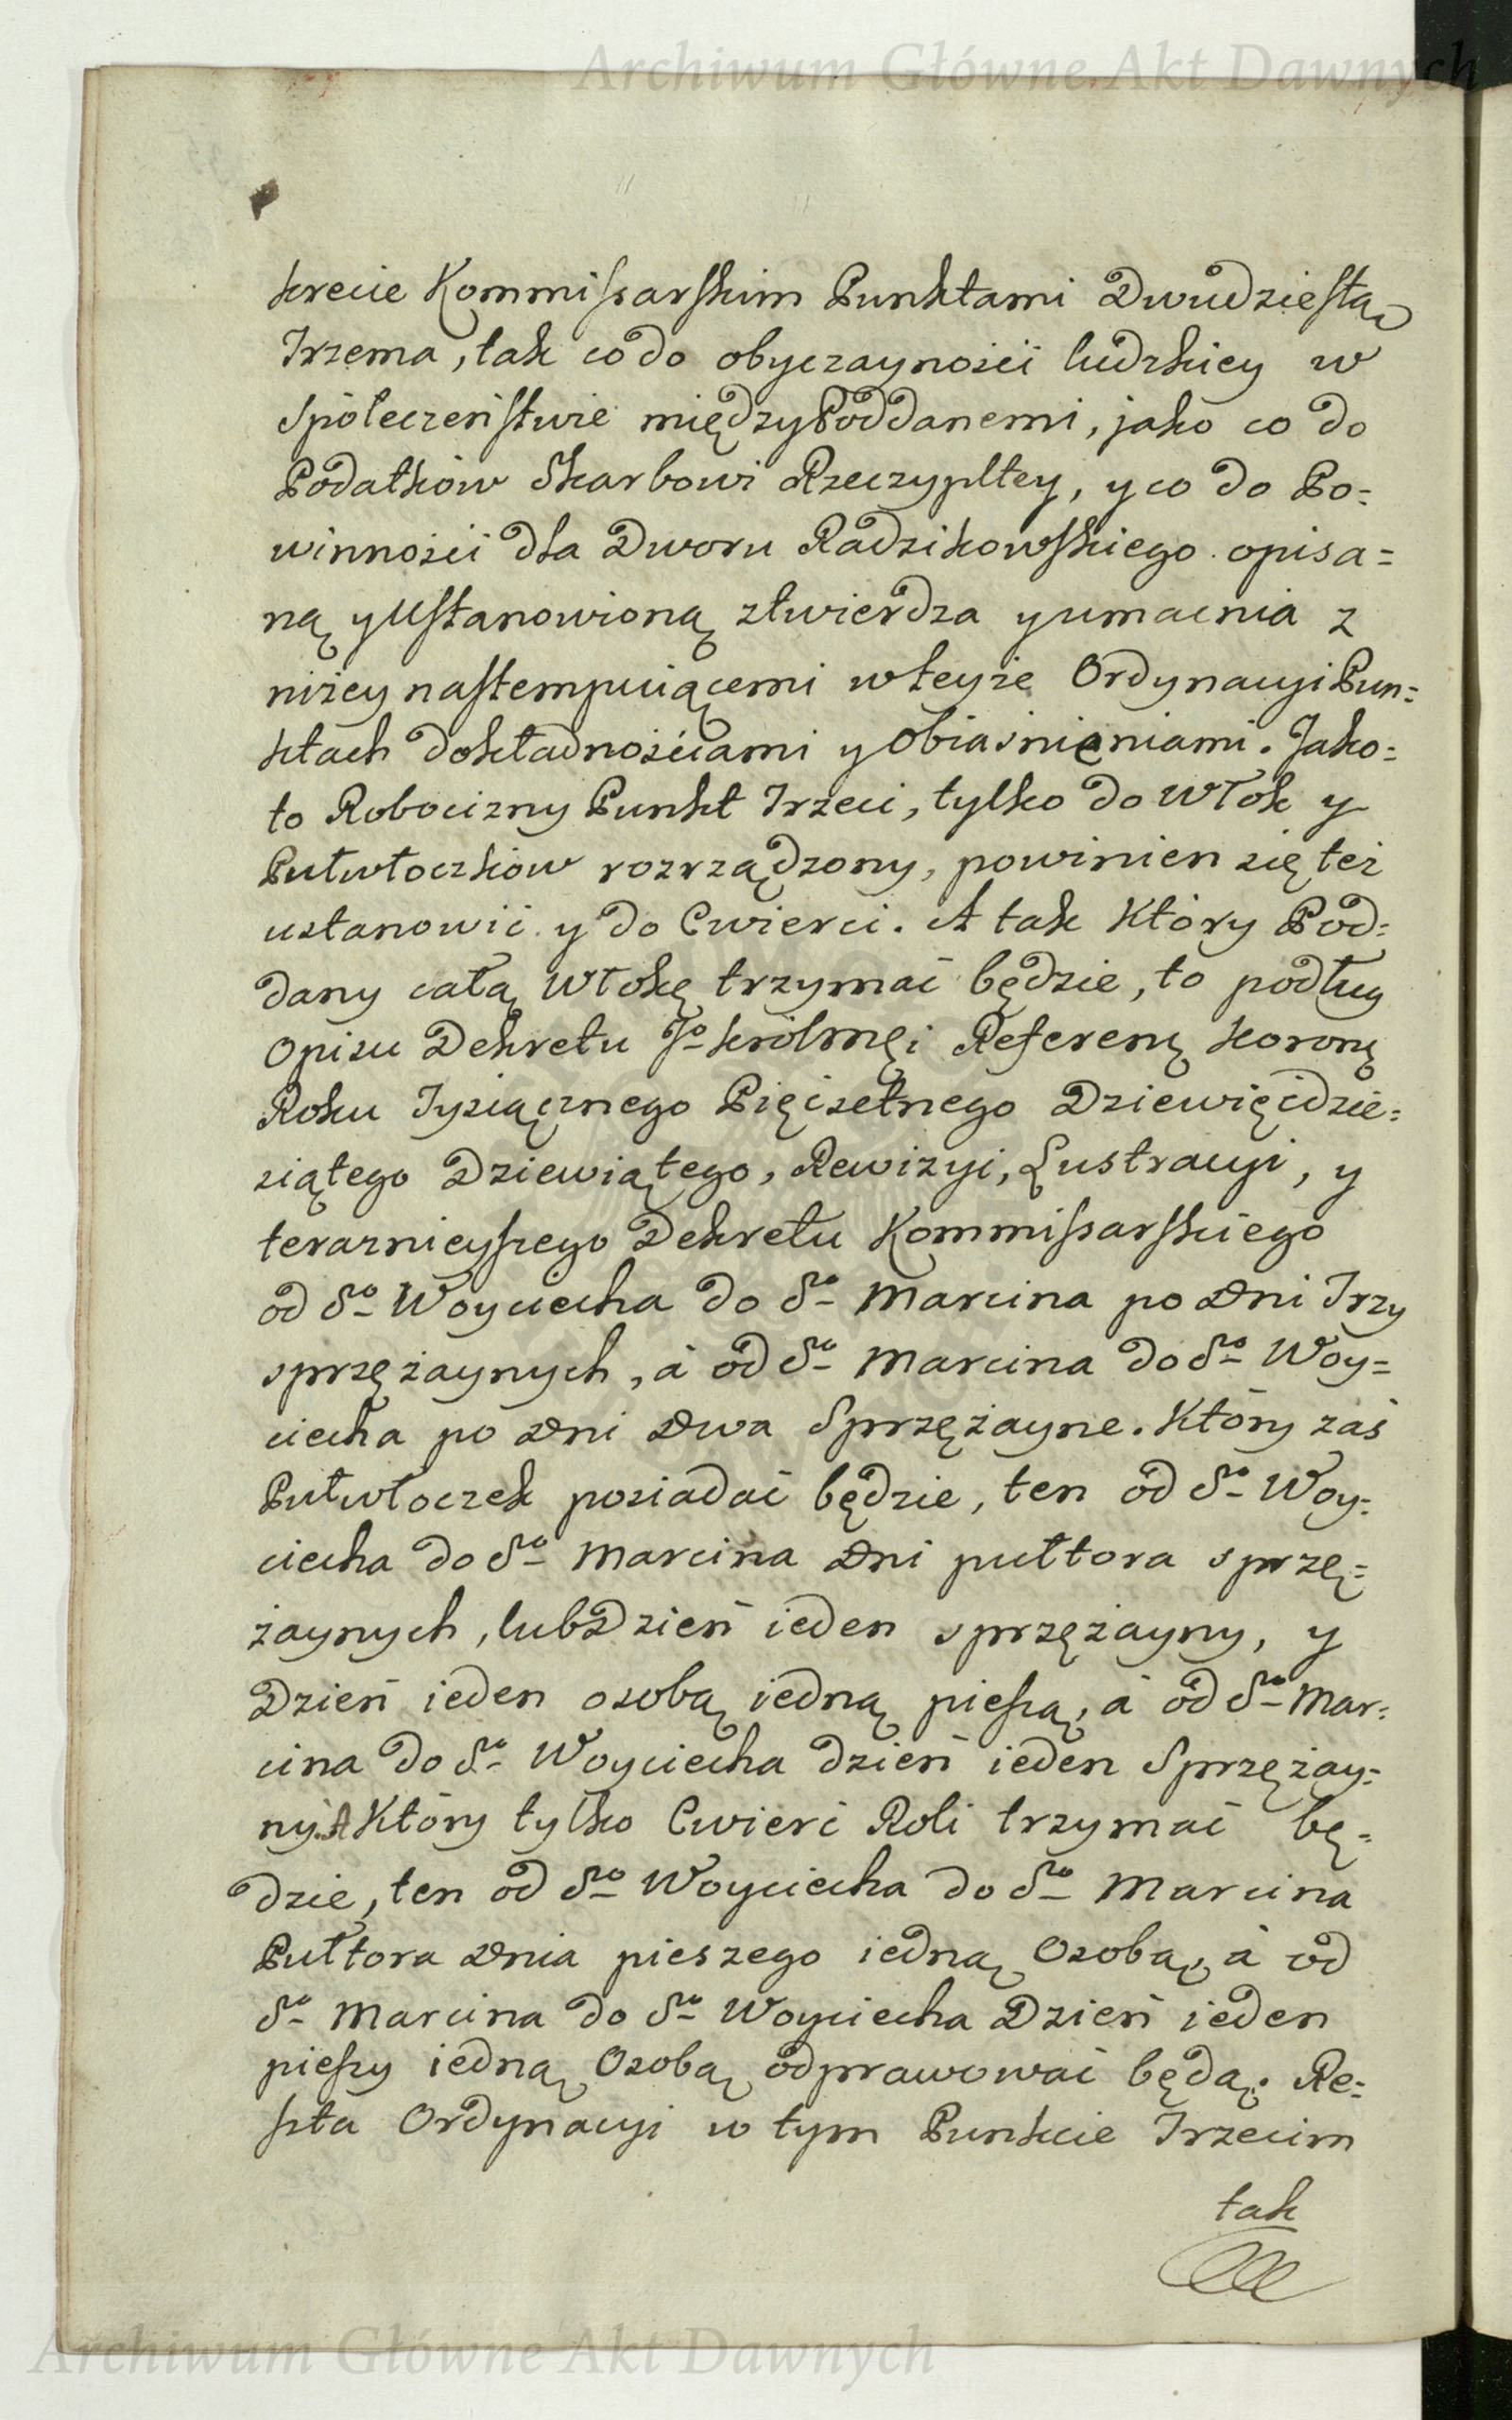 Archiwum Główne Akt Dawnych
krecie Kommissarskim Punktami Dwudziestą
Trzema, tak co do obyczayności ludzkiey w
Społeczeństwie między Poddanemi, jako co do
Podatków Skarbowi Rzeczypltey, y co do Po=
winności dla Dworu Radzikowskiego opisa=
ną y Ustanowioną ztwierdza y umacnia z
niżey nastempuiącemi w teyże Ordynacyi Pun=
ktach dokładnościami y obiaśnieniami. Jako=
to Robocizny Punkt Trzeci, tylko do Włok y
Pułwłoczków rozrządzony, powinien się też
ustanowić y do Cwierci. A tak Który Pod=
dany całą Włokę trzymać będzie, to podług
Opisu Dekretu Jo Referen Koron
Roku Tysiącznego Pięćsetnego Dziewięćdzie=
siątego Dziewiątego, Rewizyi, Lustracyi, y
teraznieyszego Dekretu Kommissarskiego
od So Woyciecha do So Marcina po Dni Trzy
sprzężaynych, á od So Marcina do So Woy=
ciecha po Dni Dwa Sprzężayne. Który zaś
Pułwłoczek posiadać będzie, ten od So Woy=
ciecha do So Marcina Dni pułtora sprzę=
żaynych, lub Dzień ieden sprzężayny, y
Dzień ieden osobą iedną pieszą, á od So Mar=
cina do So Woyciecha dzień ieden Sprzężay=
ny. A Który tylko Cwierć Roli trzymać bę=
dzie, ten od So Woyciecha do So Marcina
Pułtora Dnia pieszego iedną Osobą, á od
So Marcina do So Woyciecha Dzień ieden
pieszy iedną Osobą odprawować będą. Re=
szta Ordynacyi w tym Punkcie Trzecim
tak
Archiwum Główne Akt Dawnych